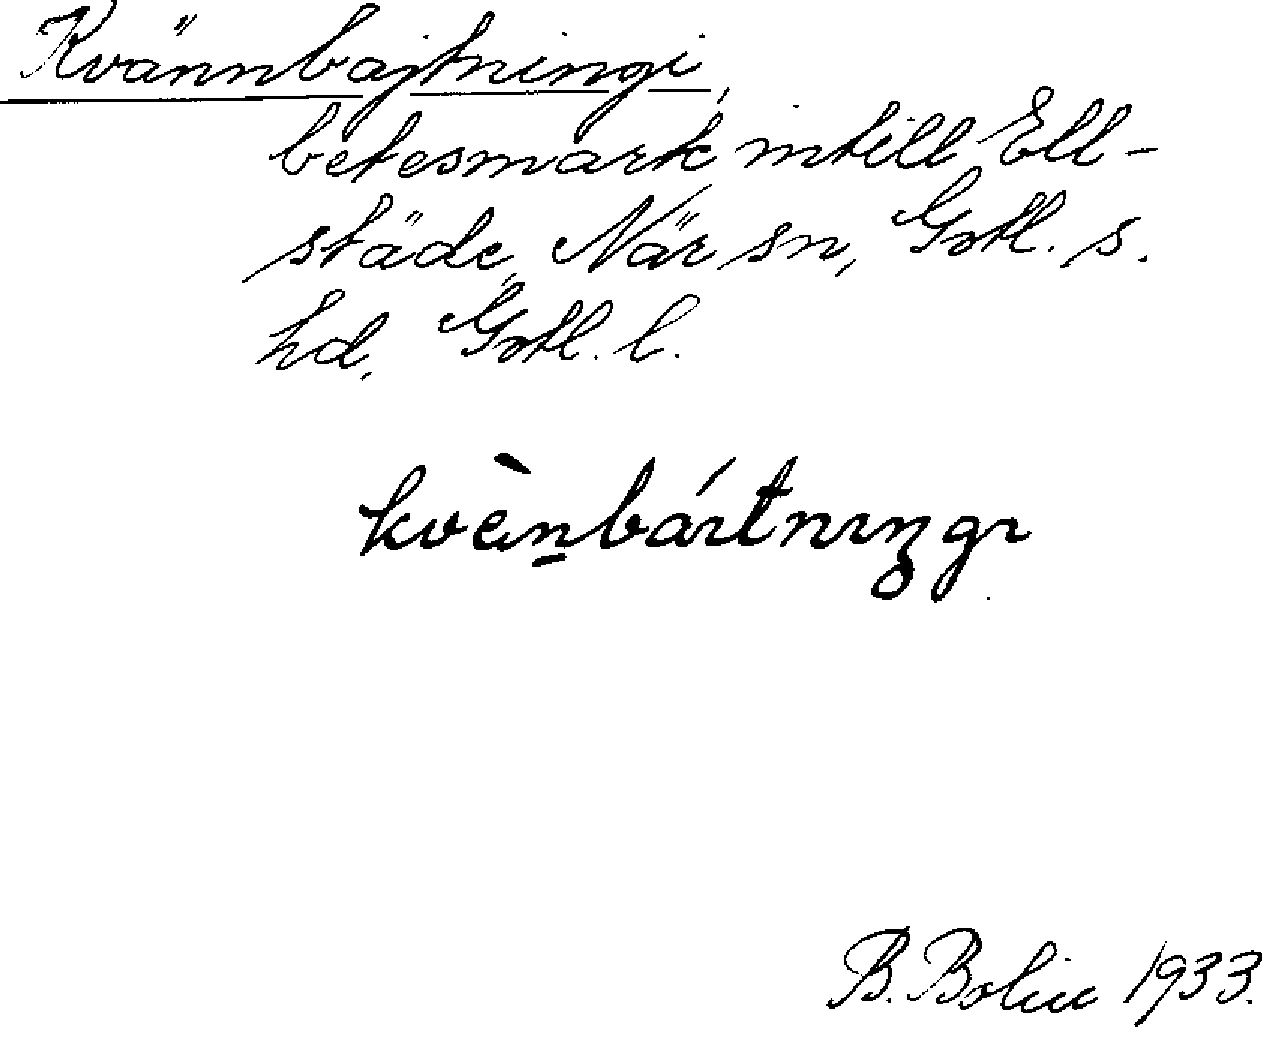 Kvännbajtningi,
betesmark intill Ell-
städe, När sn, Gotl. s.
hd, Gotl. l.
kvὲn̠báıtnıŋgı
B. Bolin 1933.